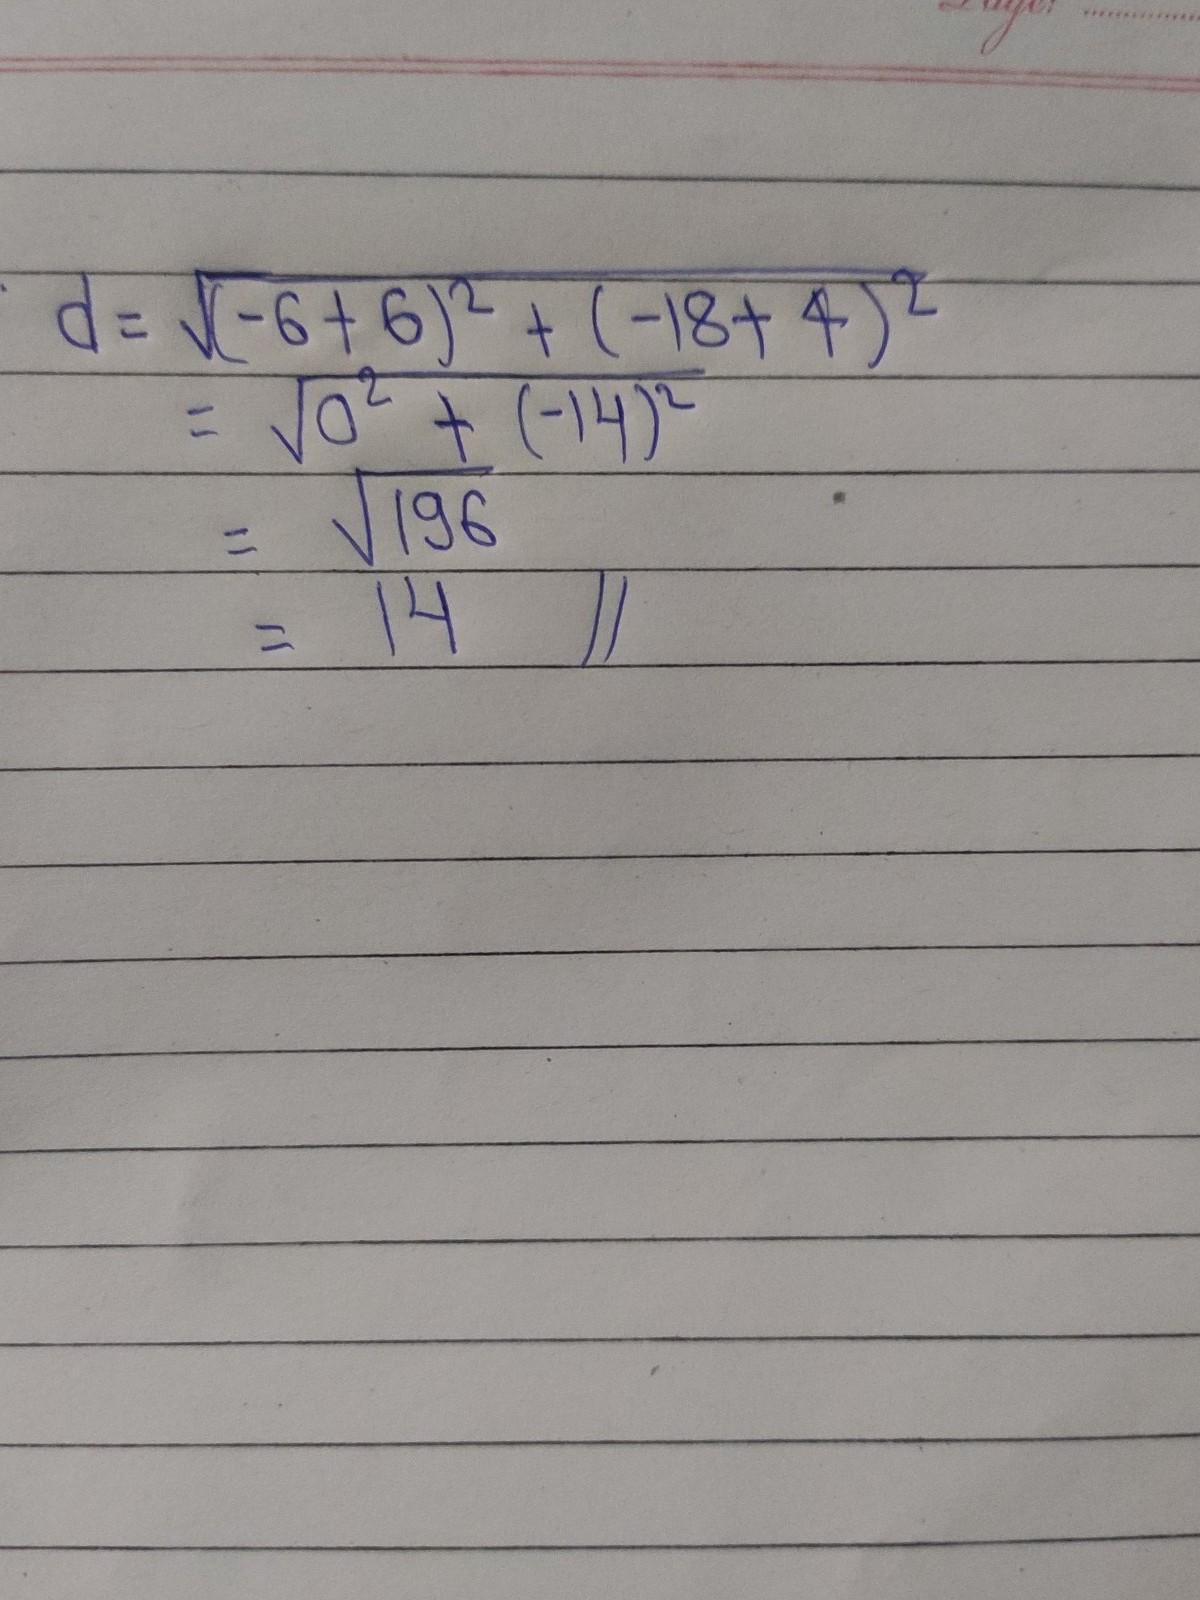 Page: ............
d = √(-6+6)² + (-18+4)²
= √0² + (-14)²
= √196
= 14 //